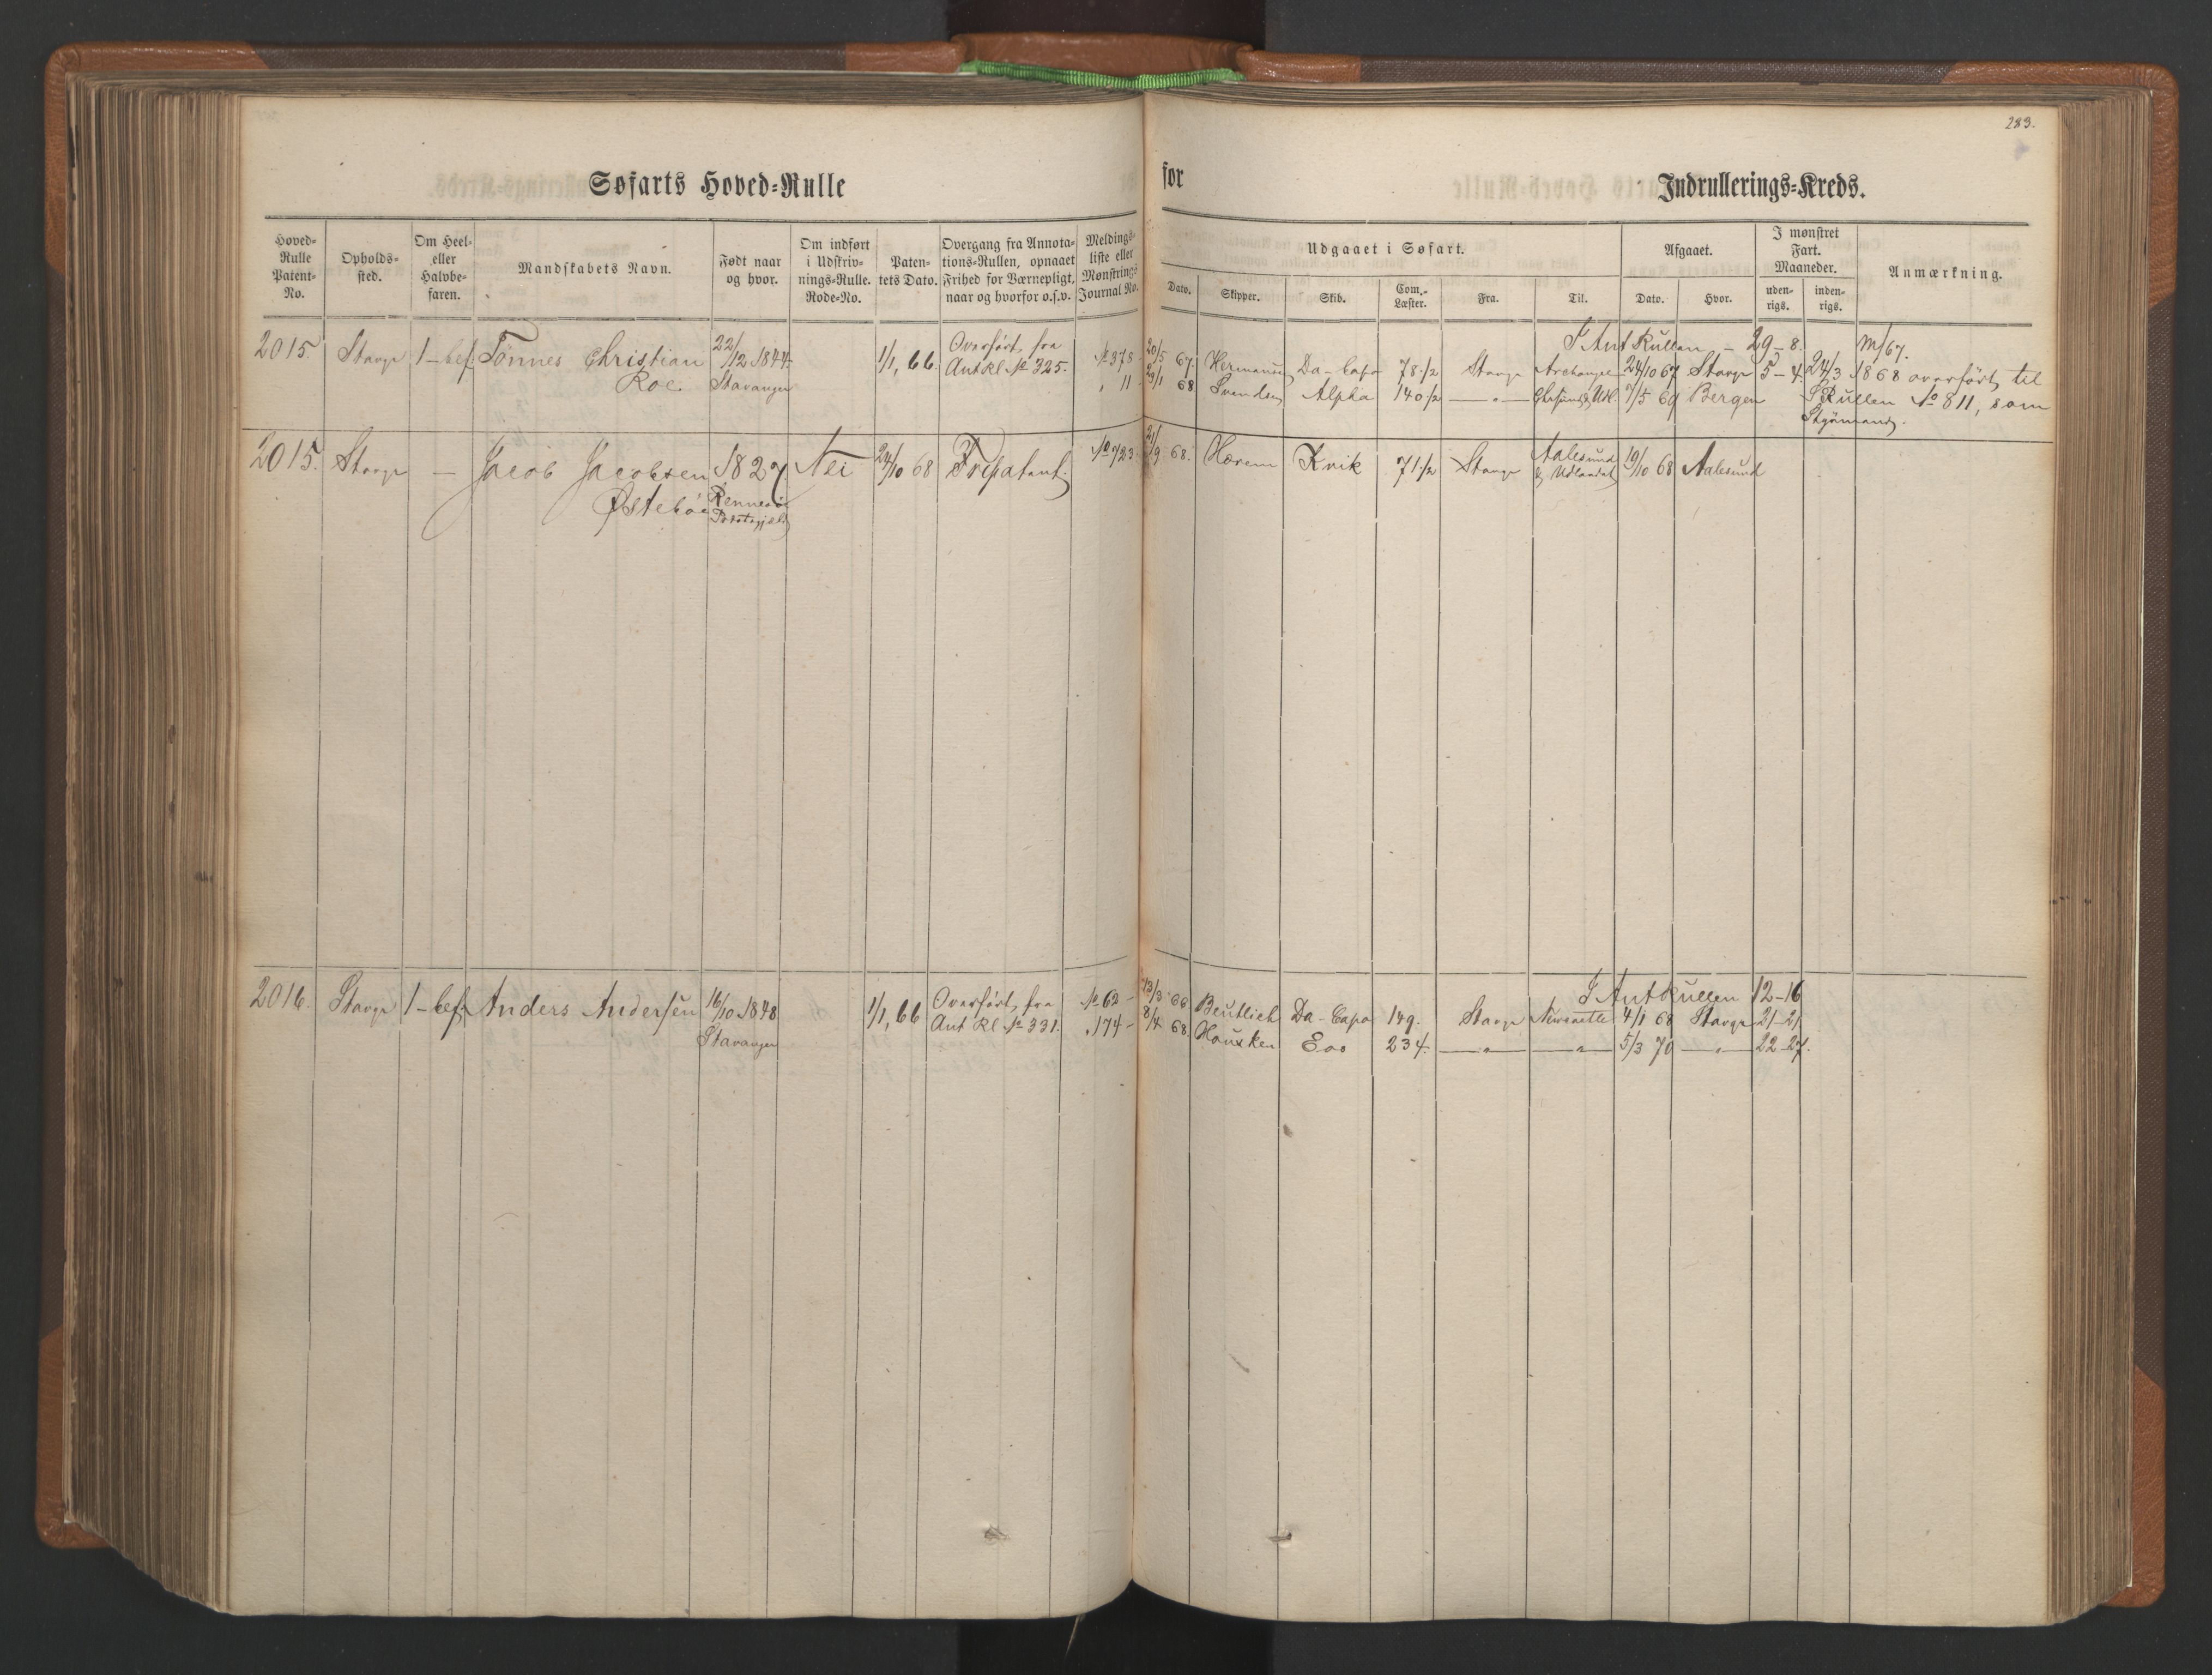 283.
Søfarts Hoved-Rulle for Indrullerings-Kreds.
Hoved-Rulle Patent-No.
Opholds-sted.
Om Heel- eller Halvbe-faren.
Mandskabets Navn.
Født naar og hvor.
Om indført i Udskriv-nings-Rulle. Rode-No.
Paten-tets Dato.
Overgang fra Annota-tions-Rullen, opnaaet Frihed for Værnepligt, naar og hvorfor o.s.v.
Meldings-liste eller Mønstrings Journal No.
Udgaaet i Søfart.
Dato. Skipper. Skib. Com.-Læster. Fra. Til.
Afgaaet.
Dato. Hvor.
I mønstret Fart. Maaneder.
uden-rigs. inden-rigs.
Anmærkning.
I Ant Rullen – 29–8. M/67.
2015 Stavgr 1–bef. Tønnes Christian 22/12 1844 1/1, 66. Overført fra № 378 20/5 67. Hermansen Da-Capo 78 1/2 Stavgr Archangel 24/10 67 Stavgr 5–4. 24/3 1868 overført til
Roe. Stavanger Ant Rl № 325. " 11. 29/1 68 Svendsen Alpha 140 1/2 —"— Chrsund & Udl. 7/5 69 Bergen S Rullen № 811, som
Styrmand.
2015. Stavgr — Jacob Jacobsen 1827. Nei 24/10 68 Fripatent. № 723. 21/9 68. Hærem Kvik 71 1/2 Stavgr Aalesund & Udlandet 19/10 68 Aalesund
Østebøe Rennesø Præstegjeld
I Ant Rullen 12–16
2016. Stavgr 1–bef. Anders Andersen 16/10 1848 1/1, 66 Overført fra № 62 – 13/3 66 Beutlich Da-Capo 149. Stavgr Newcastle 4/1 68 Stavgr 21–21
Stavanger Ant Rl № 331. " 174 – 8/4 68 Housken Eos 234. —"— —"— 5/3 70 —"— 22–27.